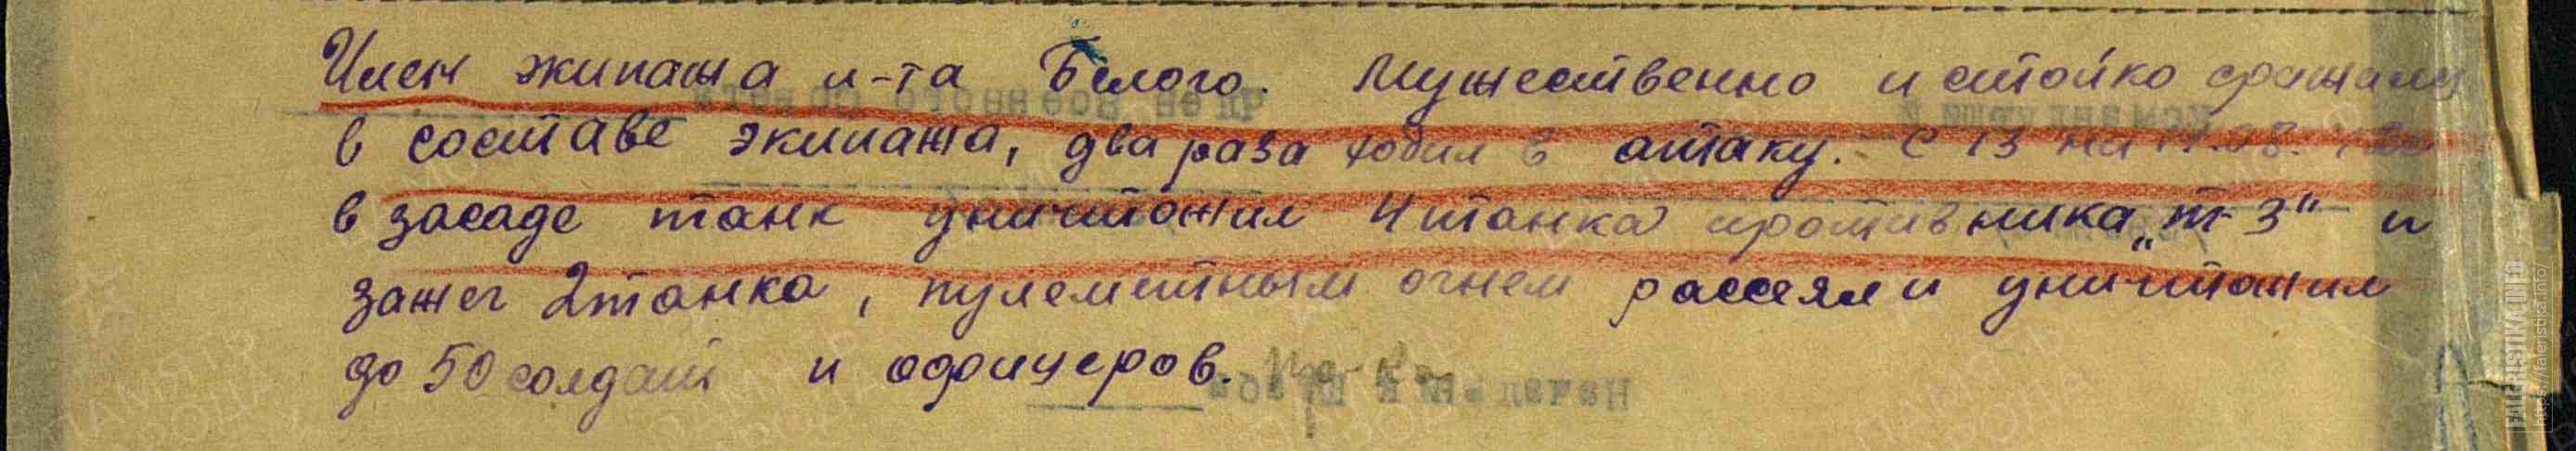 Член экипажа л-та Белого. Мужественно и стойко сражался
в составе экипажа, два раза ходил в атаку. С 13 на
в засаде танк уничтожил 4 танка противника „Т-3" и
зажег 2 танка, пулеметным огнем рассеял и уничтожил
до 50 солдат и офицеров.
FALERISTIKA.INFO
https://faleristika.info/